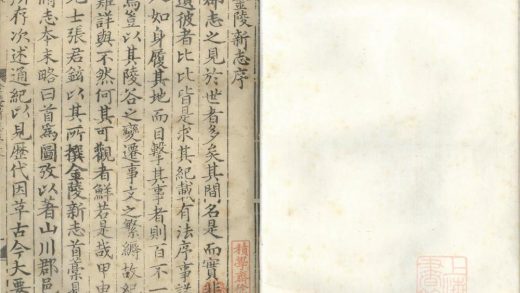 金陵新志序
郡志之見於世者多矣其間名是而實非
遺彼者比比皆是求其紀載有法序事詳
人如身履其地而目擊其事者則百不一
焉豈以其陵谷之變遷事文之繁縟故紀
難詳與不然何其可觀者鮮若是哉甲申
士張君鉉以其所撰金陵新志首藁見
志本末略曰首為圖攷以著山川郡邑
所存次述通紀以見歷代因革古今大要